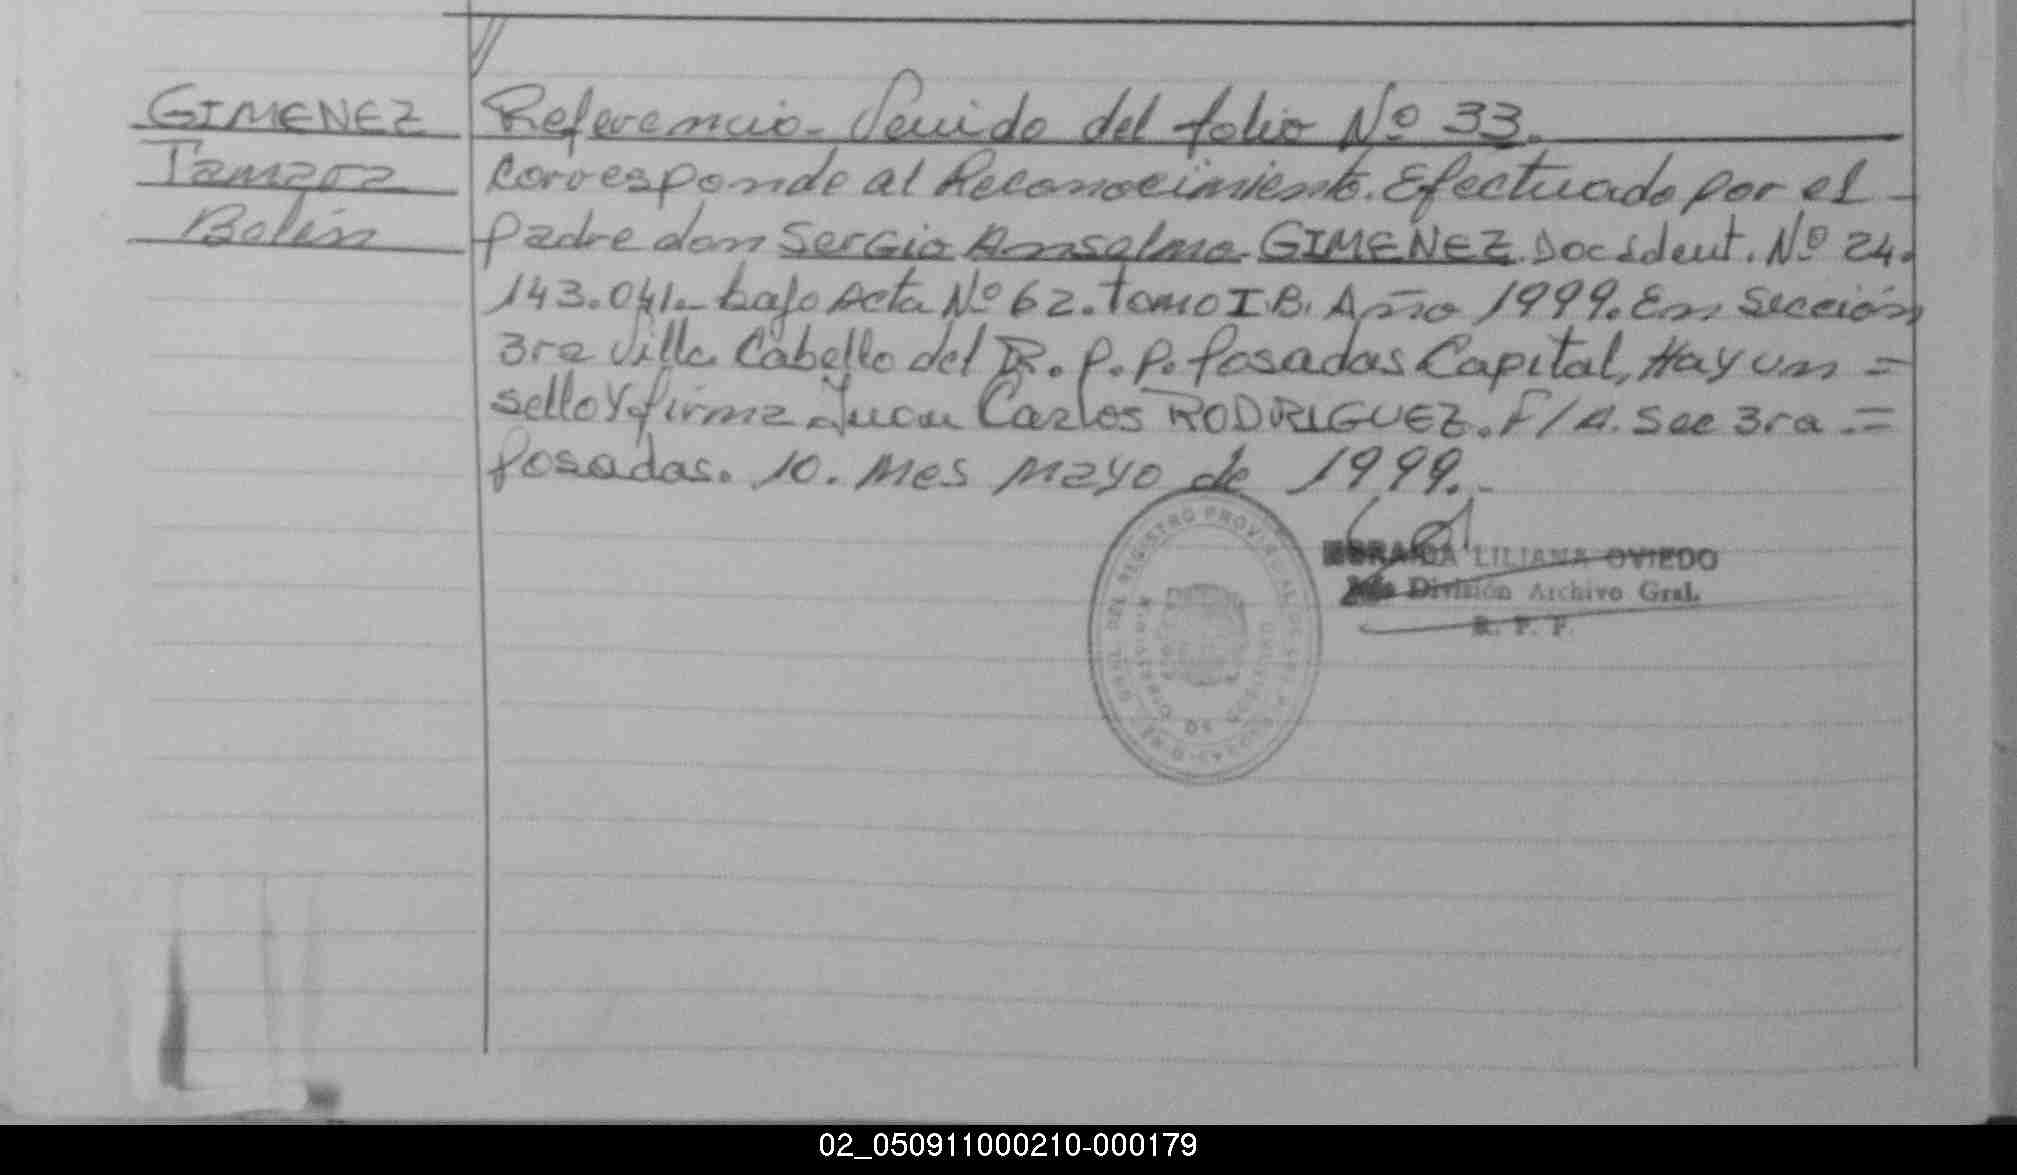 GIMENEZ
Tamara
Belén
Referencia - Venido del folio Nº 33.
corresponde al Reconocimiento. Efectuado por el -
padre don Sergio Anselmo GIMENEZ. Doc Ident. Nº 24.
143.041.- bajo Acta Nº 62. tomo I.B. Año 1999. En Sección
3ra Villa Cabello del R. P. P. Posadas Capital, Hay un =
sello y firma Juan Carlos RODRIGUEZ. F/A. Sec 3ra .=
Posadas. 10. Mes Mayo de 1999.-
LILIANA OVIEDO
División Archivo Gral.
R. P. P.
DEL REGISTRO
DE
02_050911000210-000179